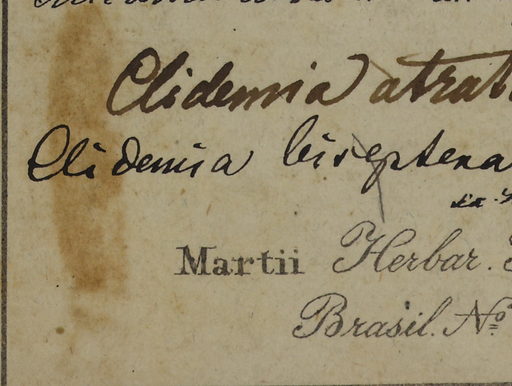 Clidemia atrat
Clidemia biseptena
Martii Herbar.
Brasil. Nº